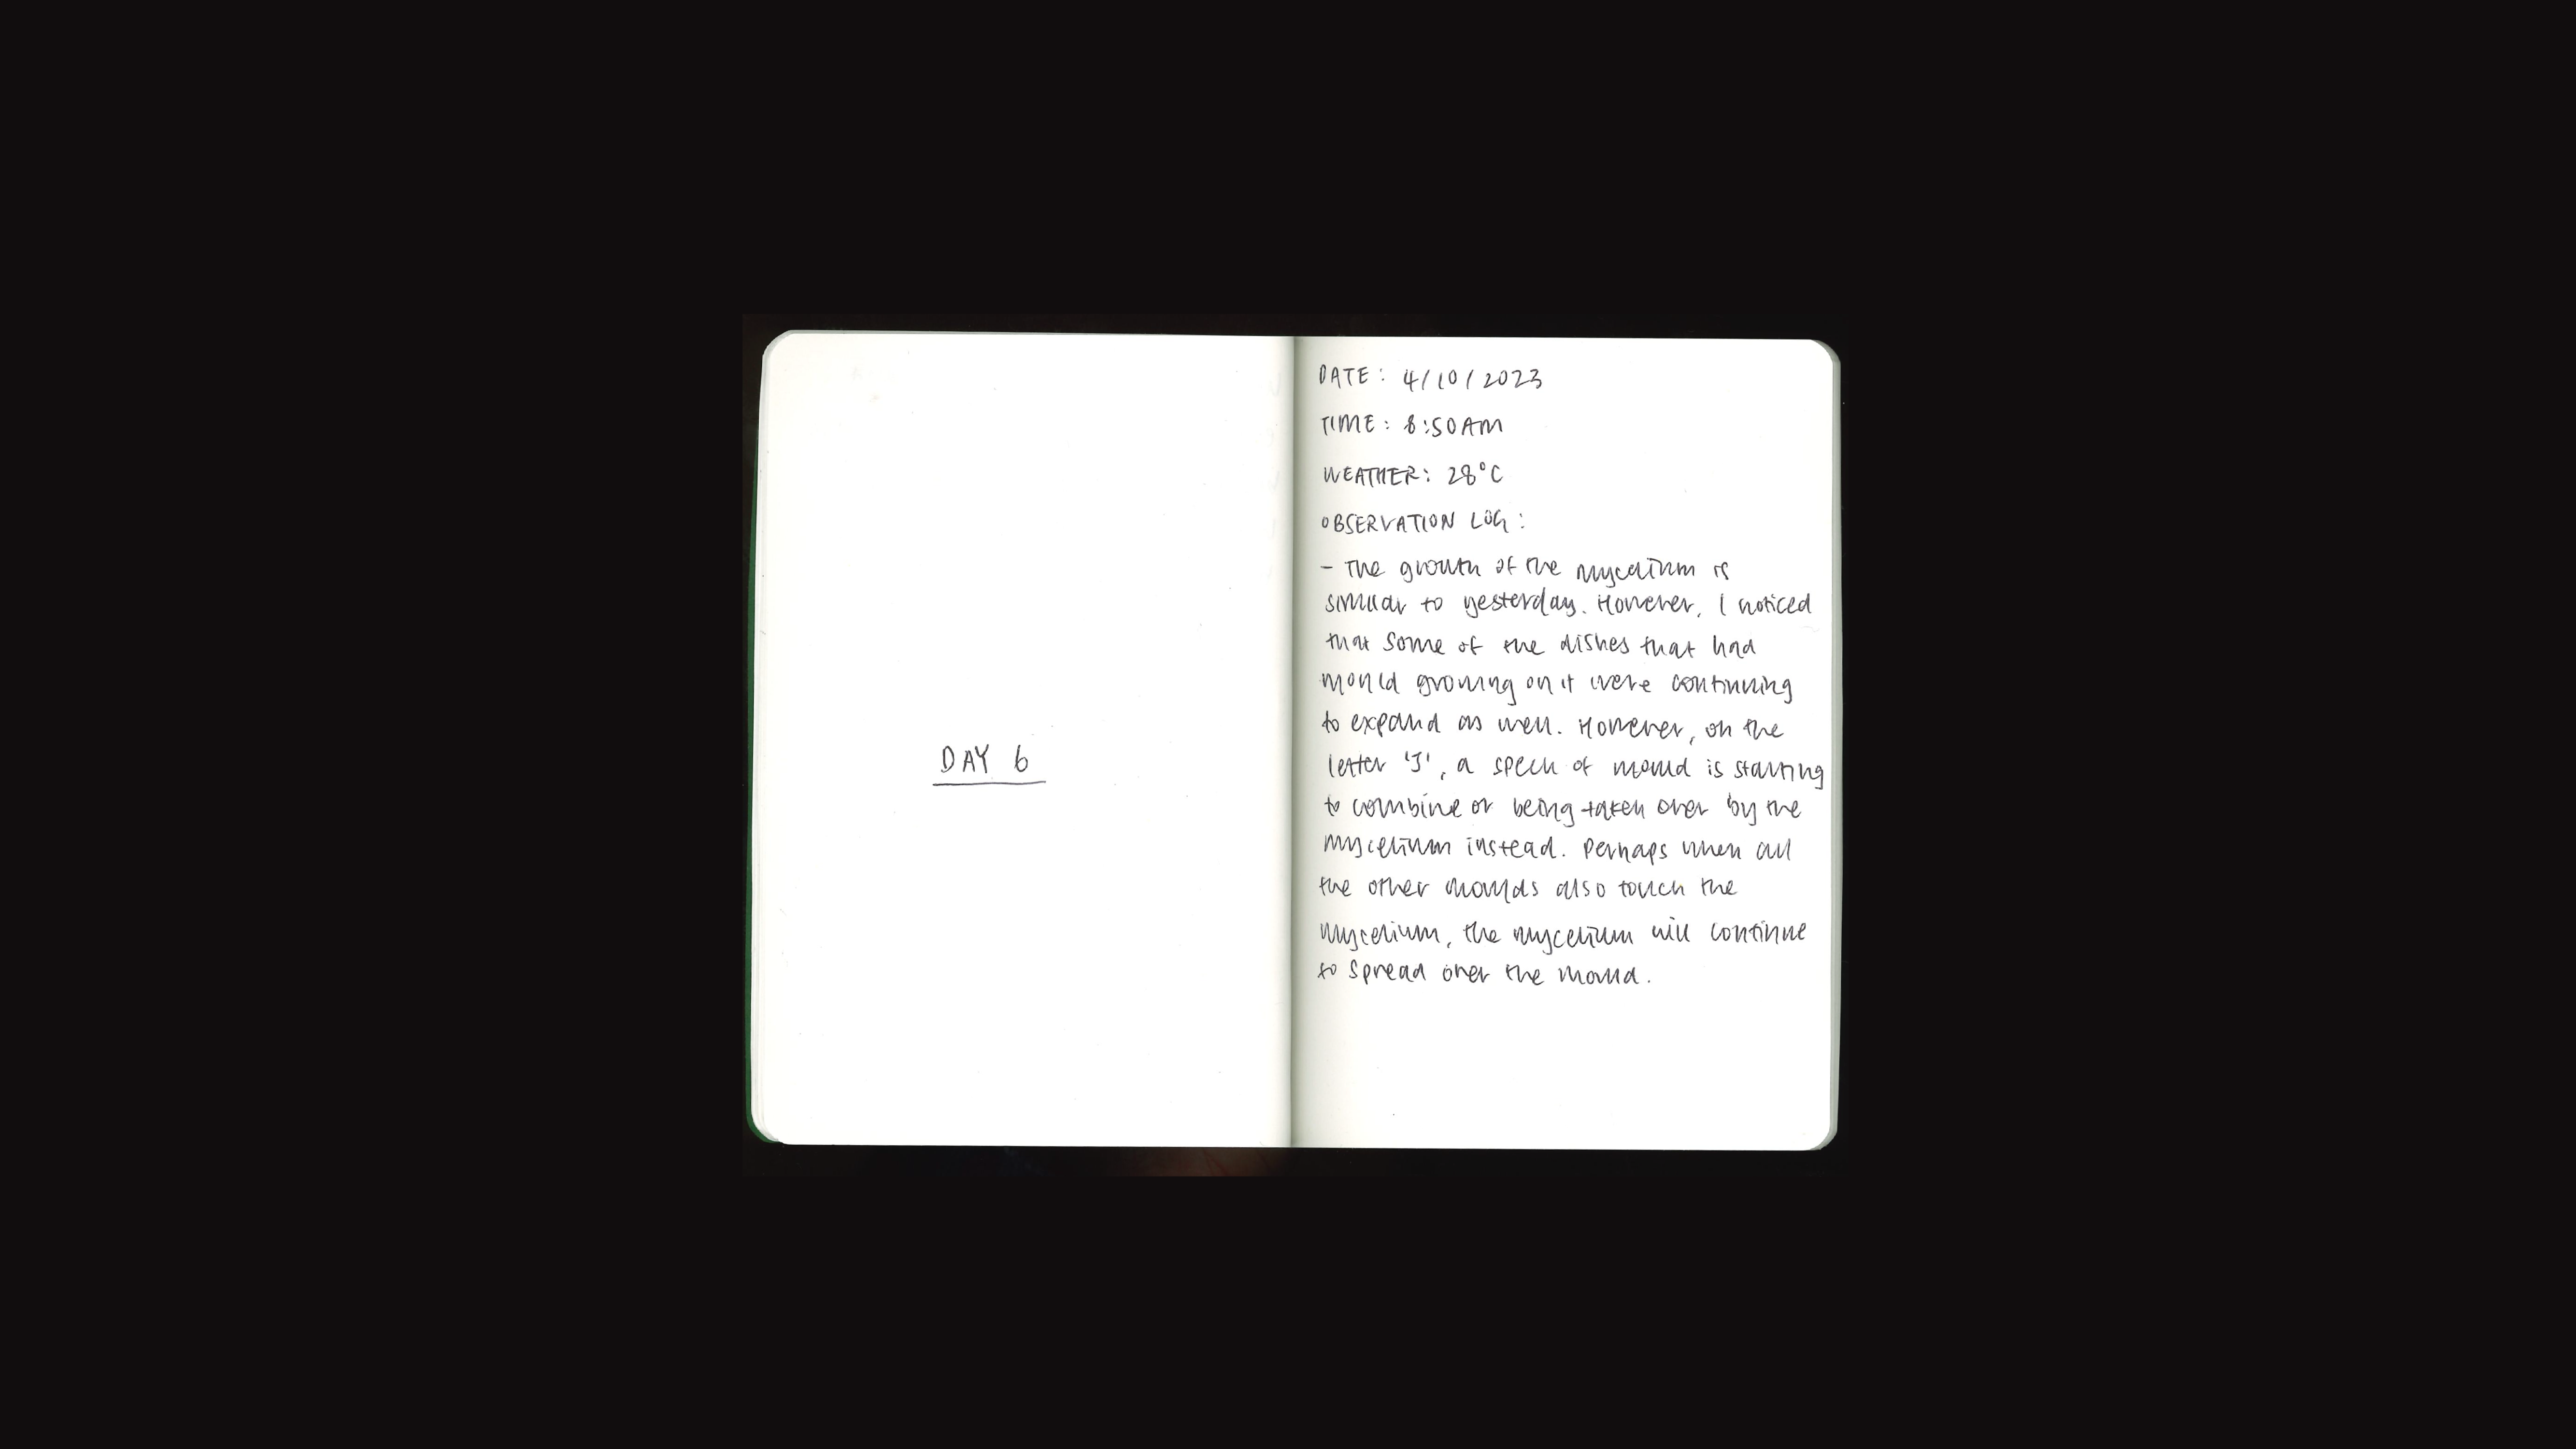 DAY 6
DATE: 4/10/2023
TIME: 8:50AM
WEATHER: 28°C
OBSERVATION LOG:
- The growth of the mycelium is
similar to yesterday. However, I noticed
that some of the dishes that had
mould growing on it were continuing
to expand as well. However, on the
letter 'J', a speck of mould is starting
to combine or being taken over by the
mycelium instead. Perhaps when all
the other moulds also touch the
mycelium, the mycelium will continue
to spread over the mould.